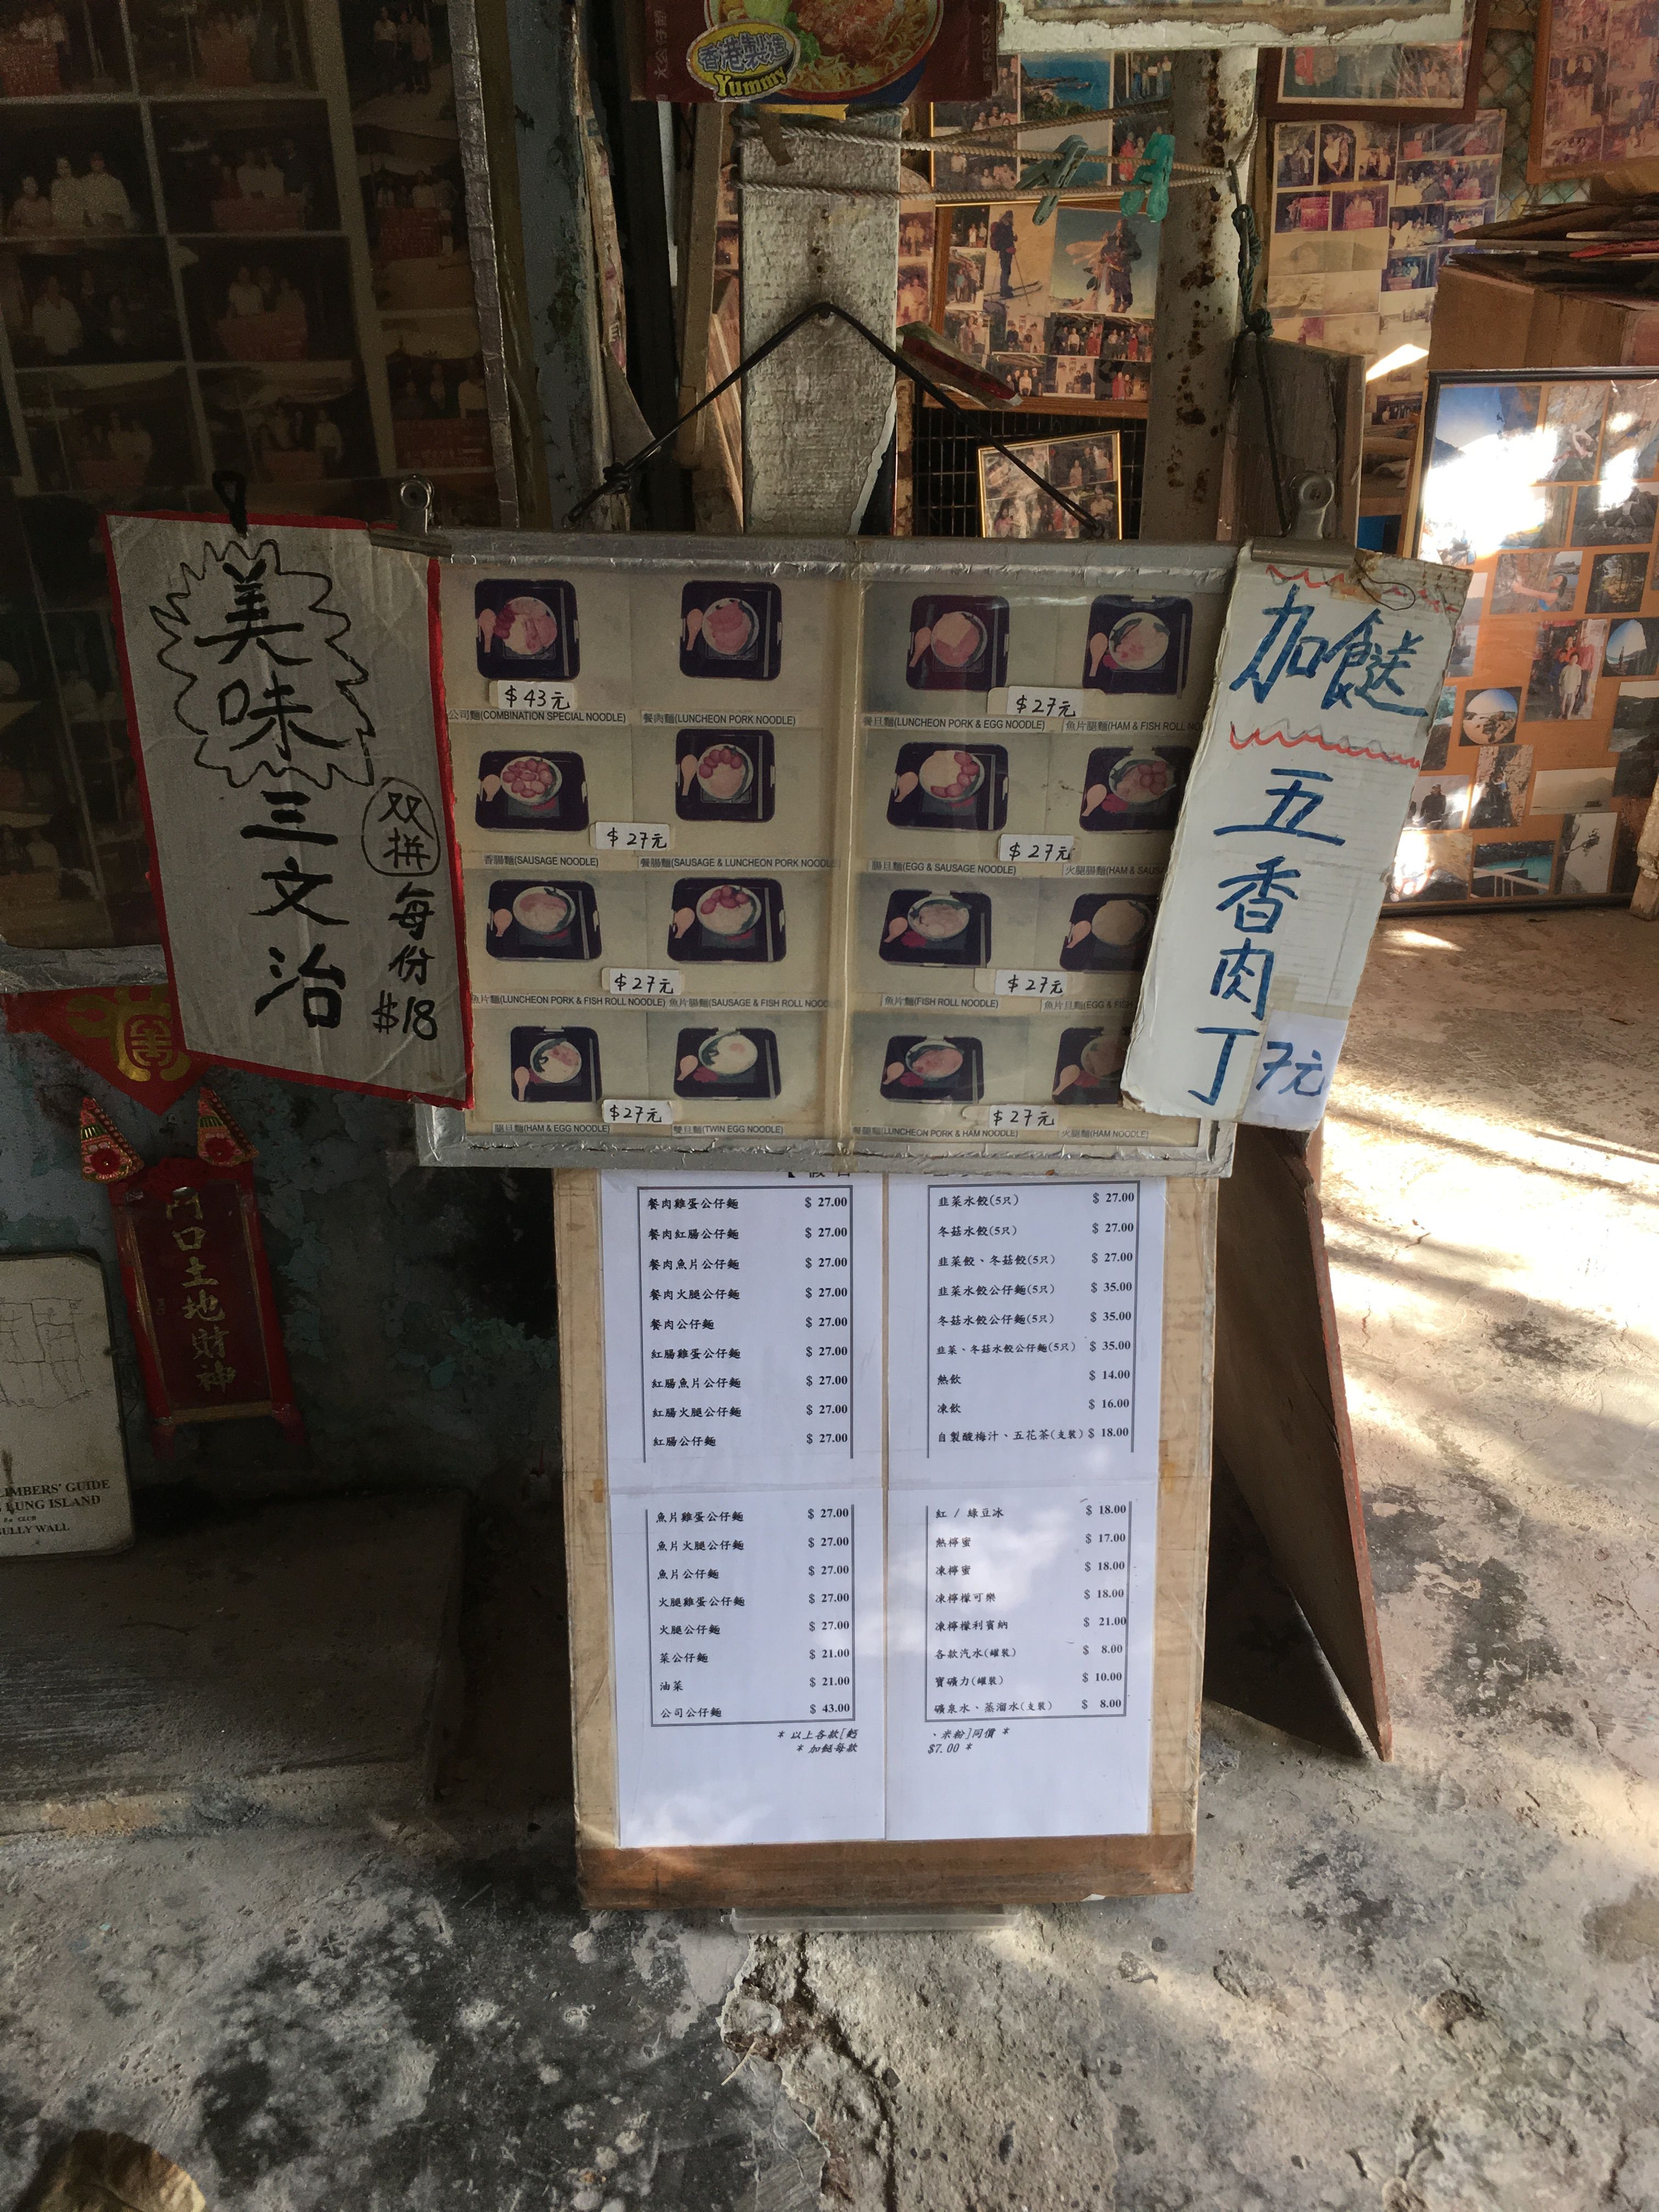 香港製造
Yummy
美味
三文治
双拼
每份
$18
$43元
公司麵(COMBINATION SPECIAL NOODLE)
餐肉麵(LUNCHEON PORK NOODLE)
$27元
餐旦麵(LUNCHEON PORK & EGG NOODLE)
魚片腿麵(HAM & FISH ROLL NO
$27元
香腸麵(SAUSAGE NOODLE)
餐腸麵(SAUSAGE & LUNCHEON PORK NOODLE
$27元
腸旦麵(EGG & SAUSAGE NOODLE)
火腿腸麵(HAM & SAUS
$27元
魚片麵(LUNCHEON PORK & FISH ROLL NOODLE)
魚片腸麵(SAUSAGE & FISH ROLL NOOD
$27元
魚片麵(FISH ROLL NOODLE)
魚片旦麵(EGG & FISH
$27元
腿旦麵(HAM & EGG NOODLE)
雙旦麵(TWIN EGG NOODLE)
$27元
餐腿麵(LUNCHEON PORK & HAM NOODLE)
火腿麵(HAM NOODLE)
加餸
五香肉丁
7元
餐肉雞蛋公仔麵 $ 27.00
餐肉紅腸公仔麵 $ 27.00
餐肉魚片公仔麵 $ 27.00
餐肉火腿公仔麵 $ 27.00
餐肉公仔麵 $ 27.00
紅腸雞蛋公仔麵 $ 27.00
紅腸魚片公仔麵 $ 27.00
紅腸火腿公仔麵 $ 27.00
紅腸公仔麵 $ 27.00
魚片雞蛋公仔麵 $ 27.00
魚片火腿公仔麵 $ 27.00
魚片公仔麵 $ 27.00
火腿雞蛋公仔麵 $ 27.00
火腿公仔麵 $ 27.00
菜公仔麵 $ 21.00
油菜 $ 21.00
公司公仔麵 $ 43.00
韭菜水餃(5只) $ 27.00
冬菇水餃(5只) $ 27.00
韭菜餃、冬菇餃(5只) $ 27.00
韭菜水餃公仔麵(5只) $ 35.00
冬菇水餃公仔麵(5只) $ 35.00
韭菜、冬菇水餃公仔麵(5只) $ 35.00
熱飲 $ 14.00
凍飲 $ 16.00
自製酸梅汁、五花茶(支裝) $ 18.00
紅 / 綠豆冰 $ 18.00
熱檸蜜 $ 17.00
凍檸蜜 $ 18.00
凍檸檬可樂 $ 18.00
凍檸檬利賓納 $ 21.00
各款汽水(罐裝) $ 8.00
寶礦力(罐裝) $ 10.00
礦泉水、蒸溜水(支裝) $ 8.00
* 以上各款[麪、米粉]同價 *
* 加餸每款 $7.00 *
門口土地財神
LIMBERS' GUIDE
LUNG ISLAND
CLUB
ULLY WALL